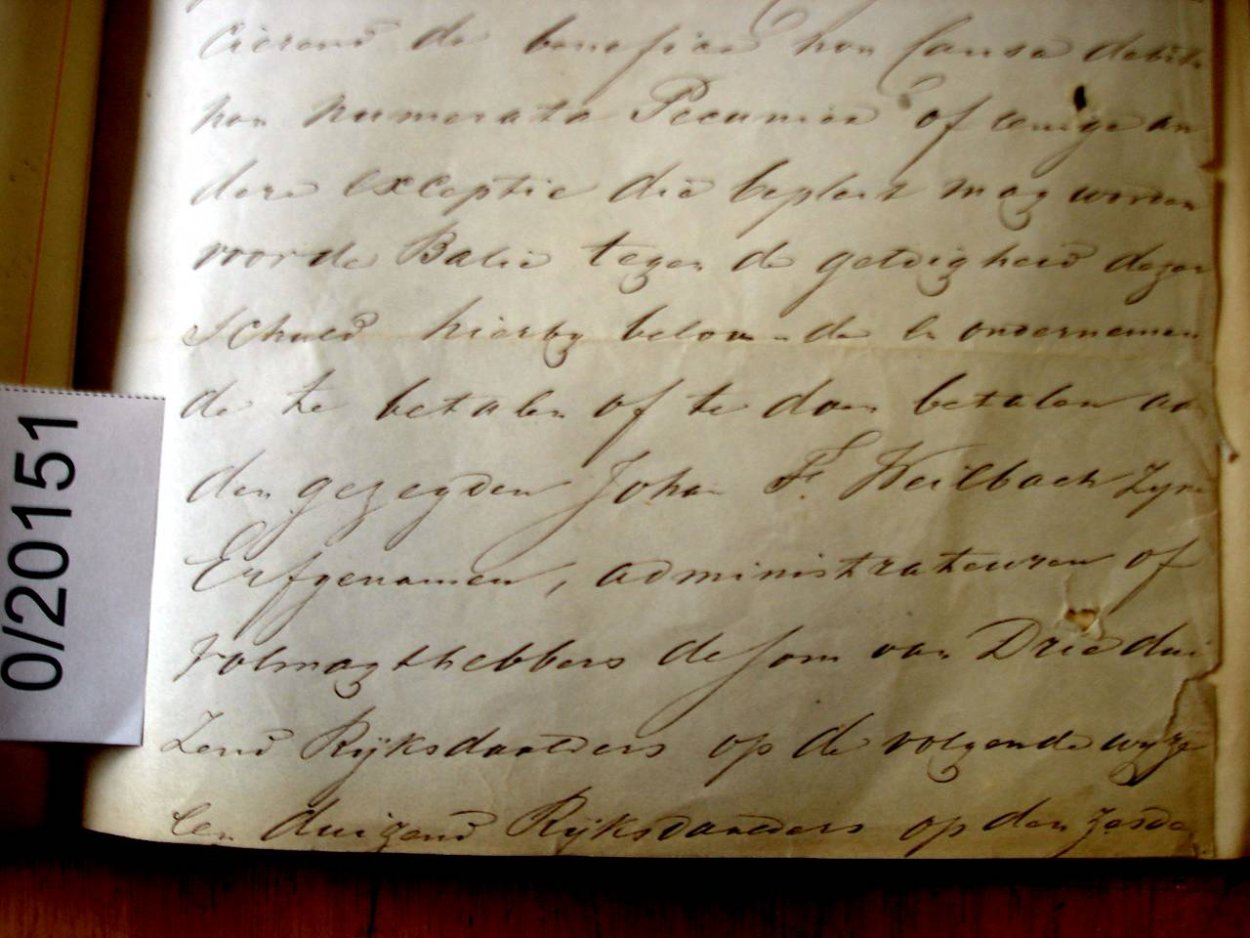 cierend de beneficien non Causa debiti
non numerata Pecuniae of eenige an
dere exceptie die bepleit mag worden
voor de Balie tegen de geldigheid dezer
Schuld hierby belovende en ondernemen
de te betalen of te doen betalen aan
den gezegden Johan F. Heilbach Zyne
Erfgenamen, administrateuren of
volmagthebbers de som van Drie dui
Zend Rijksdaalders op de volgende wyze
Een duizend Rijksdaalders op den zesde
0/20151